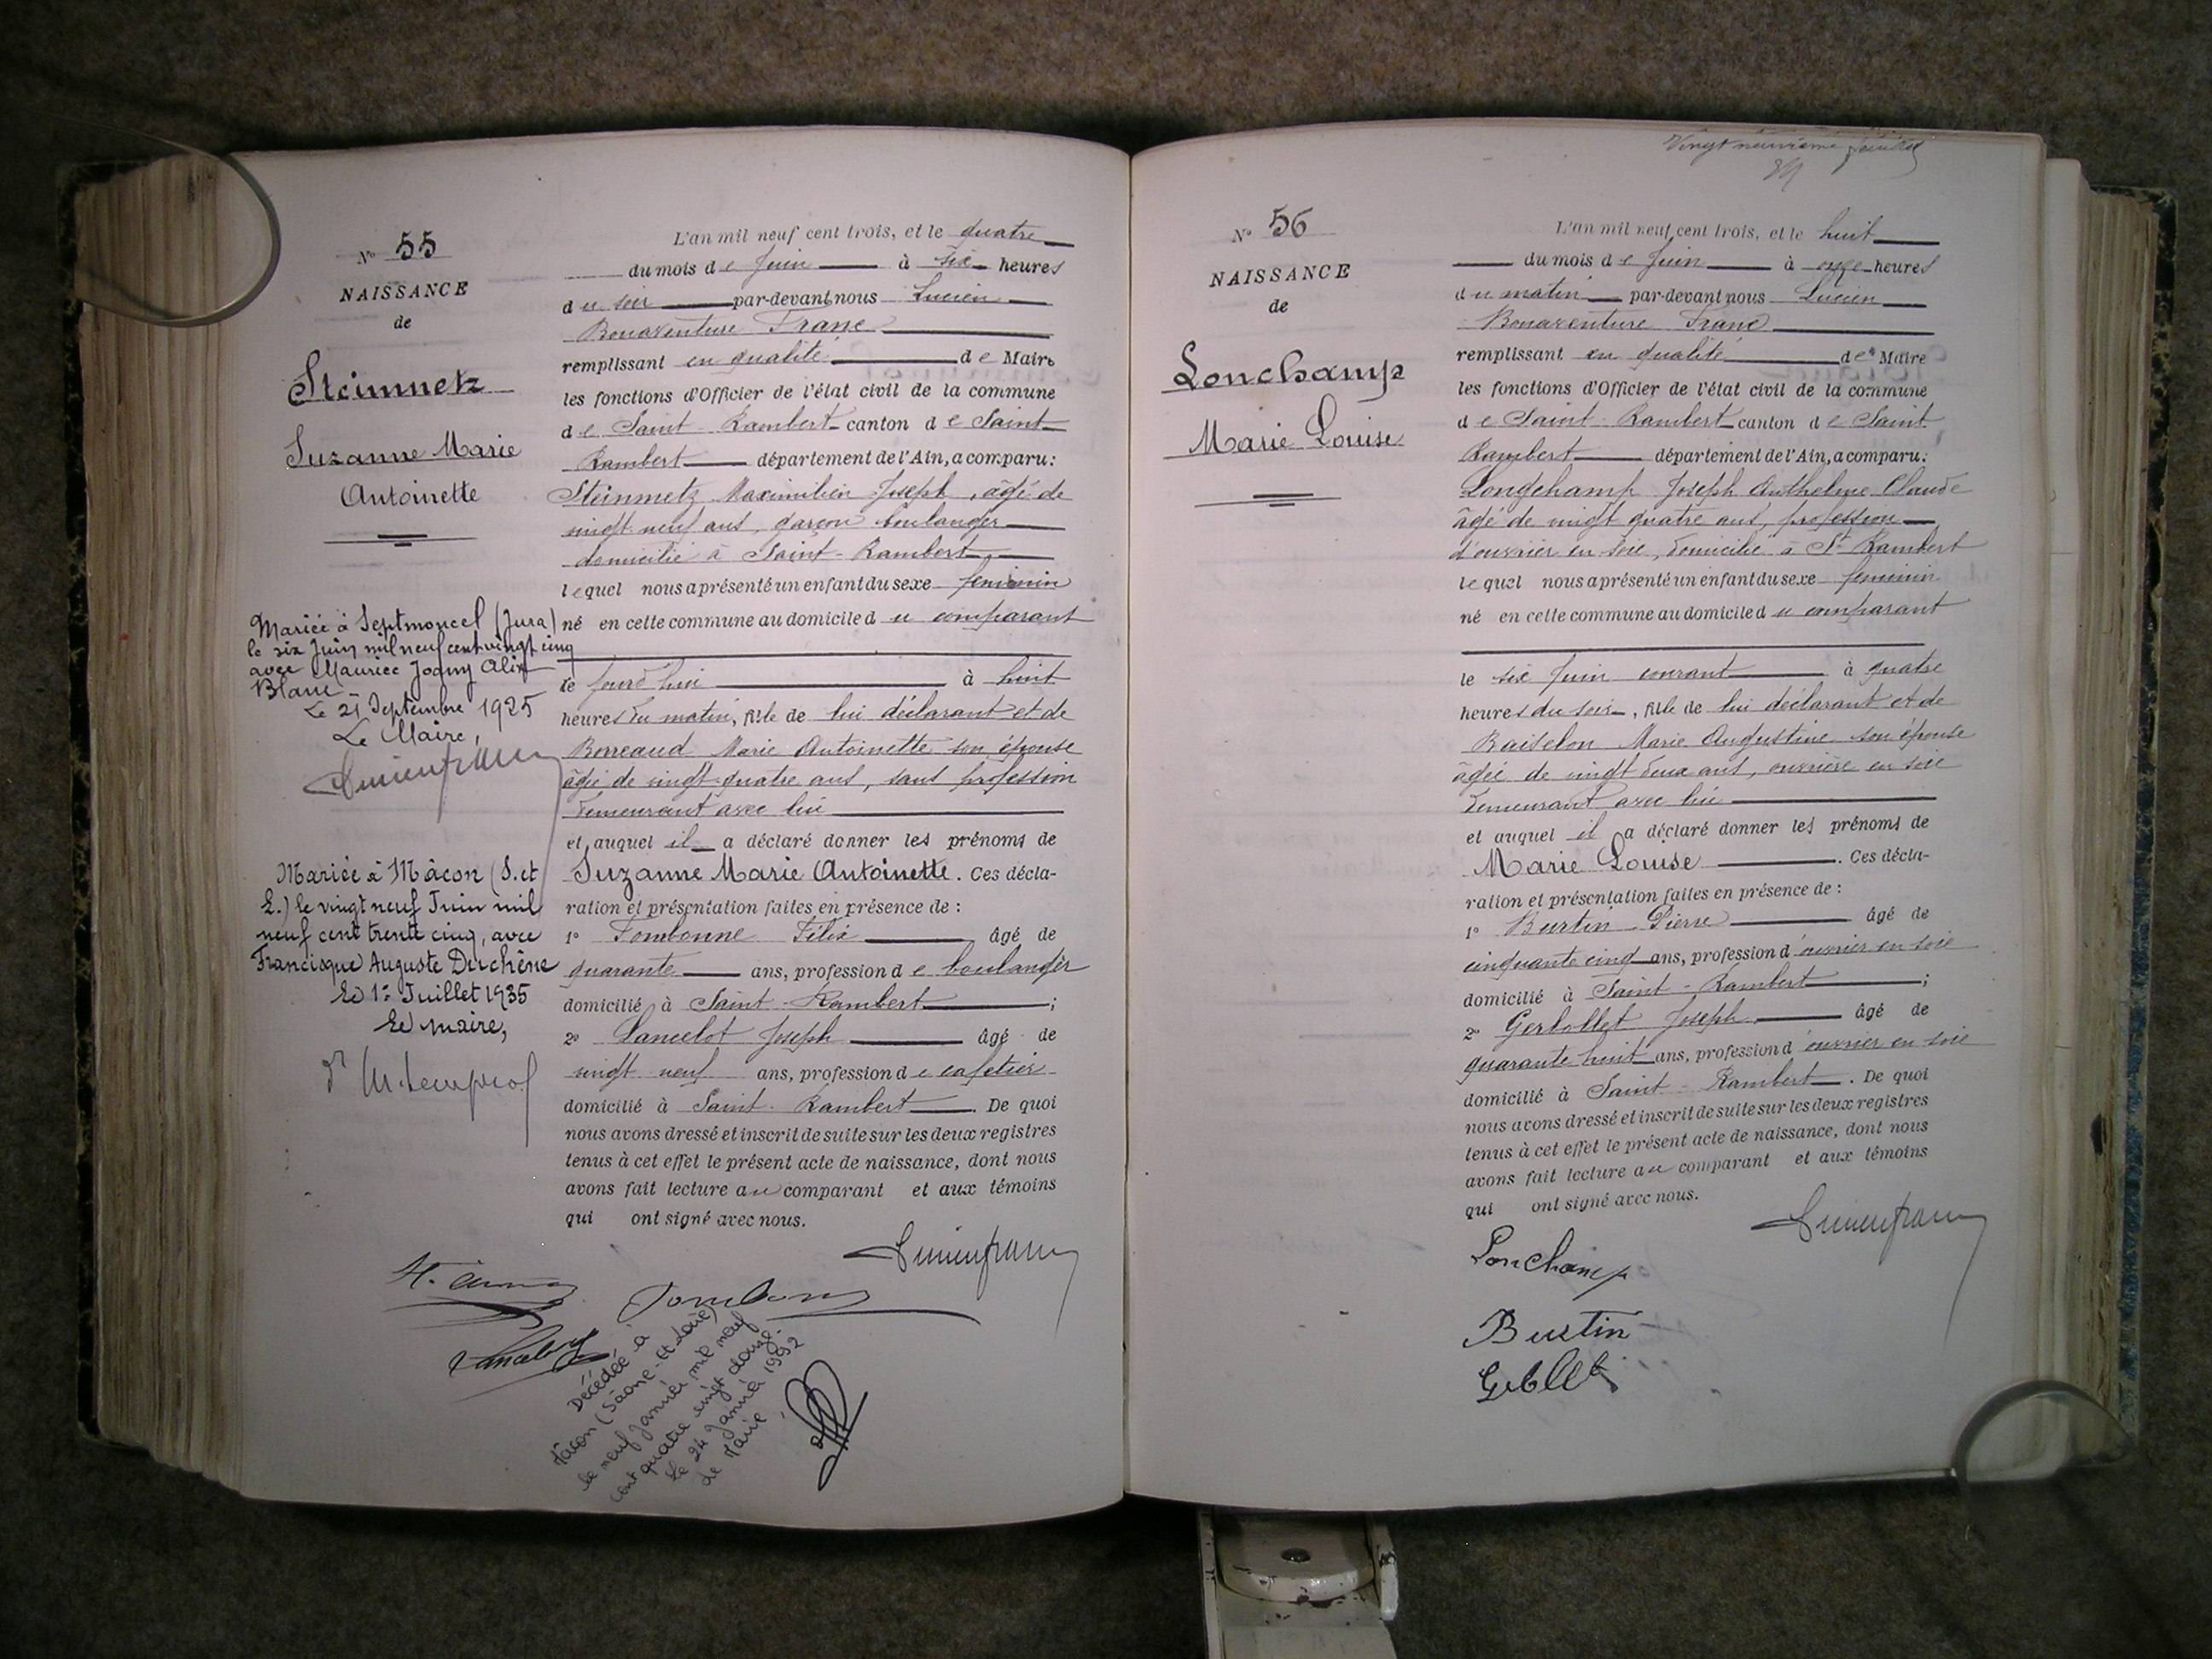 N° 55
NAISSANCE
de
Steinmetz
Suzanne Marie
Antoinette
Mariée à Septmoncel (Jura)
le six Juin mil neuf cent vingt cinq
avec Maurice Joany Alix
Blanc
Le 21 Septembre 1925
Le Maire,
Mariée à Mâcon (S. et
L.) le vingt neuf Juin mil
neuf cent trente cinq, avec
Francisque Auguste Duchêne
Le 1er Juillet 1935
Le Maire,
L'an mil neuf cent trois, et le quatre
du mois de Juin à six heures
du soir par-devant nous Lucien
Bonaventure Franc
remplissant en qualité de Maire
les fonctions d'Officier de l'état civil de la commune
de Saint-Rambert canton de Saint-
Rambert département de l'Ain, a comparu:
Steinmetz Maximilien Joseph, âgé de
vingt neuf ans, garçon boulanger
domicilié à Saint-Rambert,
lequel nous a présenté un enfant du sexe féminin
né en cette commune au domicile du comparant
le jourd'hui à huit
heures du matin, fille de lui déclarant et de
Marie Antoinette son épouse
âgée de vingt-quatre ans, sans profession
demeurant avec lui
et auquel il a déclaré donner les prénoms de
Suzanne Marie Antoinette. Ces décla-
ration et présentation faites en présence de :
1° Fombonne Félix âgé de
quarante ans, profession de boulanger
domicilié à Saint-Rambert ;
2° Lancelot Joseph âgé de
vingt neuf ans, profession de cafetier
domicilié à Saint-Rambert. De quoi
nous avons dressé et inscrit de suite sur les deux registres
tenus à cet effet le présent acte de naissance, dont nous
avons fait lecture au comparant et aux témoins
qui ont signé avec nous.
Décédée à
Macon (Saône-et-Loire)
le neuf Janvier mil neuf
cent quatre vingt douze.
Le 24 Janvier 1992
Le Maire
Vingt neuvième feuillet
N° 56
NAISSANCE
de
Lonchamp
Marie Louise
L'an mil neuf cent trois, et le huit
du mois de Juin à onze heures
du matin par-devant nous Lucien
Bonaventure Franc
remplissant en qualité de Maire
les fonctions d'Officier de l'état civil de la commune
de Saint-Rambert canton de Saint
Rambert département de l'Ain, a comparu:
Longchamp Joseph Anthelme Claude
âgé de vingt quatre ans, profession
d'ouvrier en soie, domicilié à St Rambert
lequel nous a présenté un enfant du sexe féminin
né en cette commune au domicile du comparant
le six Juin courant à quatre
heures du soir, fille de lui déclarant et de
Marie Augustine son épouse
âgée de vingt deux ans, ouvrière en soie
demeurant avec lui
et auquel il a déclaré donner les prénoms de
Marie Louise. Ces décla-
ration et présentation faites en présence de :
1° Burtin Pierre âgé de
cinquante cinq ans, profession d'ouvrier en soie
domicilié à Saint-Rambert ;
2° Gerbollet Joseph âgé de
quarante huit ans, profession d'ouvrier en soie
domicilié à Saint-Rambert. De quoi
nous avons dressé et inscrit de suite sur les deux registres
tenus à cet effet le présent acte de naissance, dont nous
avons fait lecture au comparant et aux témoins
qui ont signé avec nous.
Lonchamp
Burtin